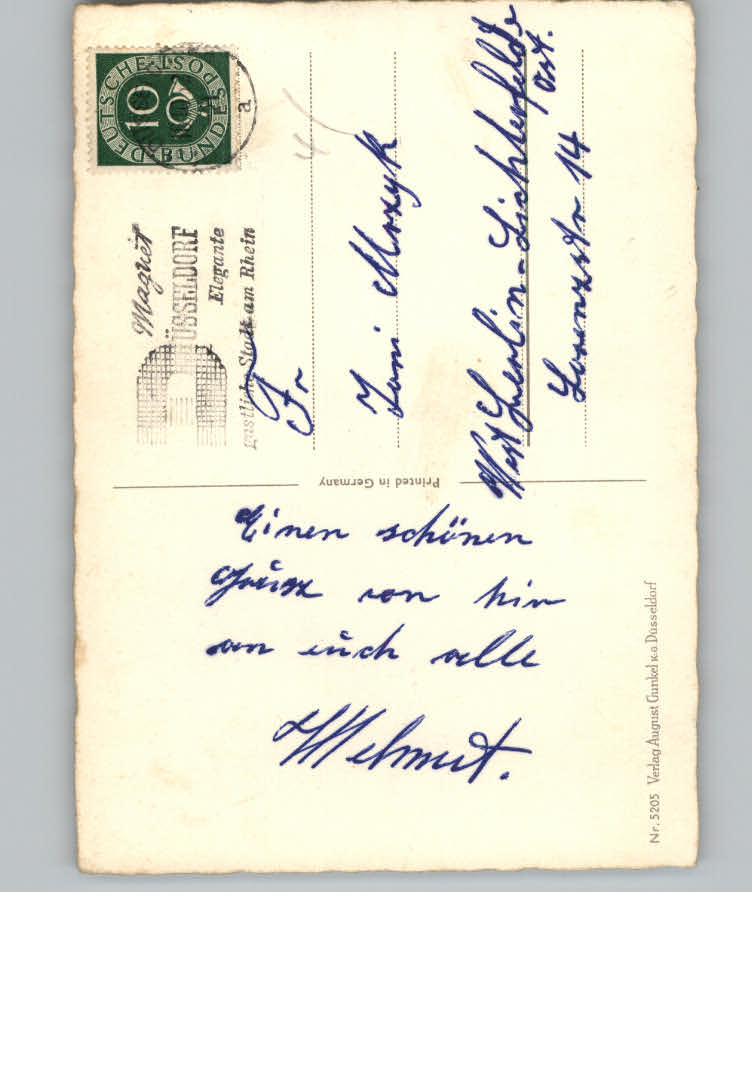 DEUTSCHE BUNDESPOST
10
a
Magnet
DÜSSELDORF
Elegante
gastliche Stadt am Rhein
Fr
Toni Mrozyk
West Berlin-Lichterfelde
Ost.
Lorenzstr 14
Printed in Germany
Einen schönen
Gruss von hir
an euch alle
Helmut.
Nr. 5205 Verlag August Gunkel K.G. Düsseldorf